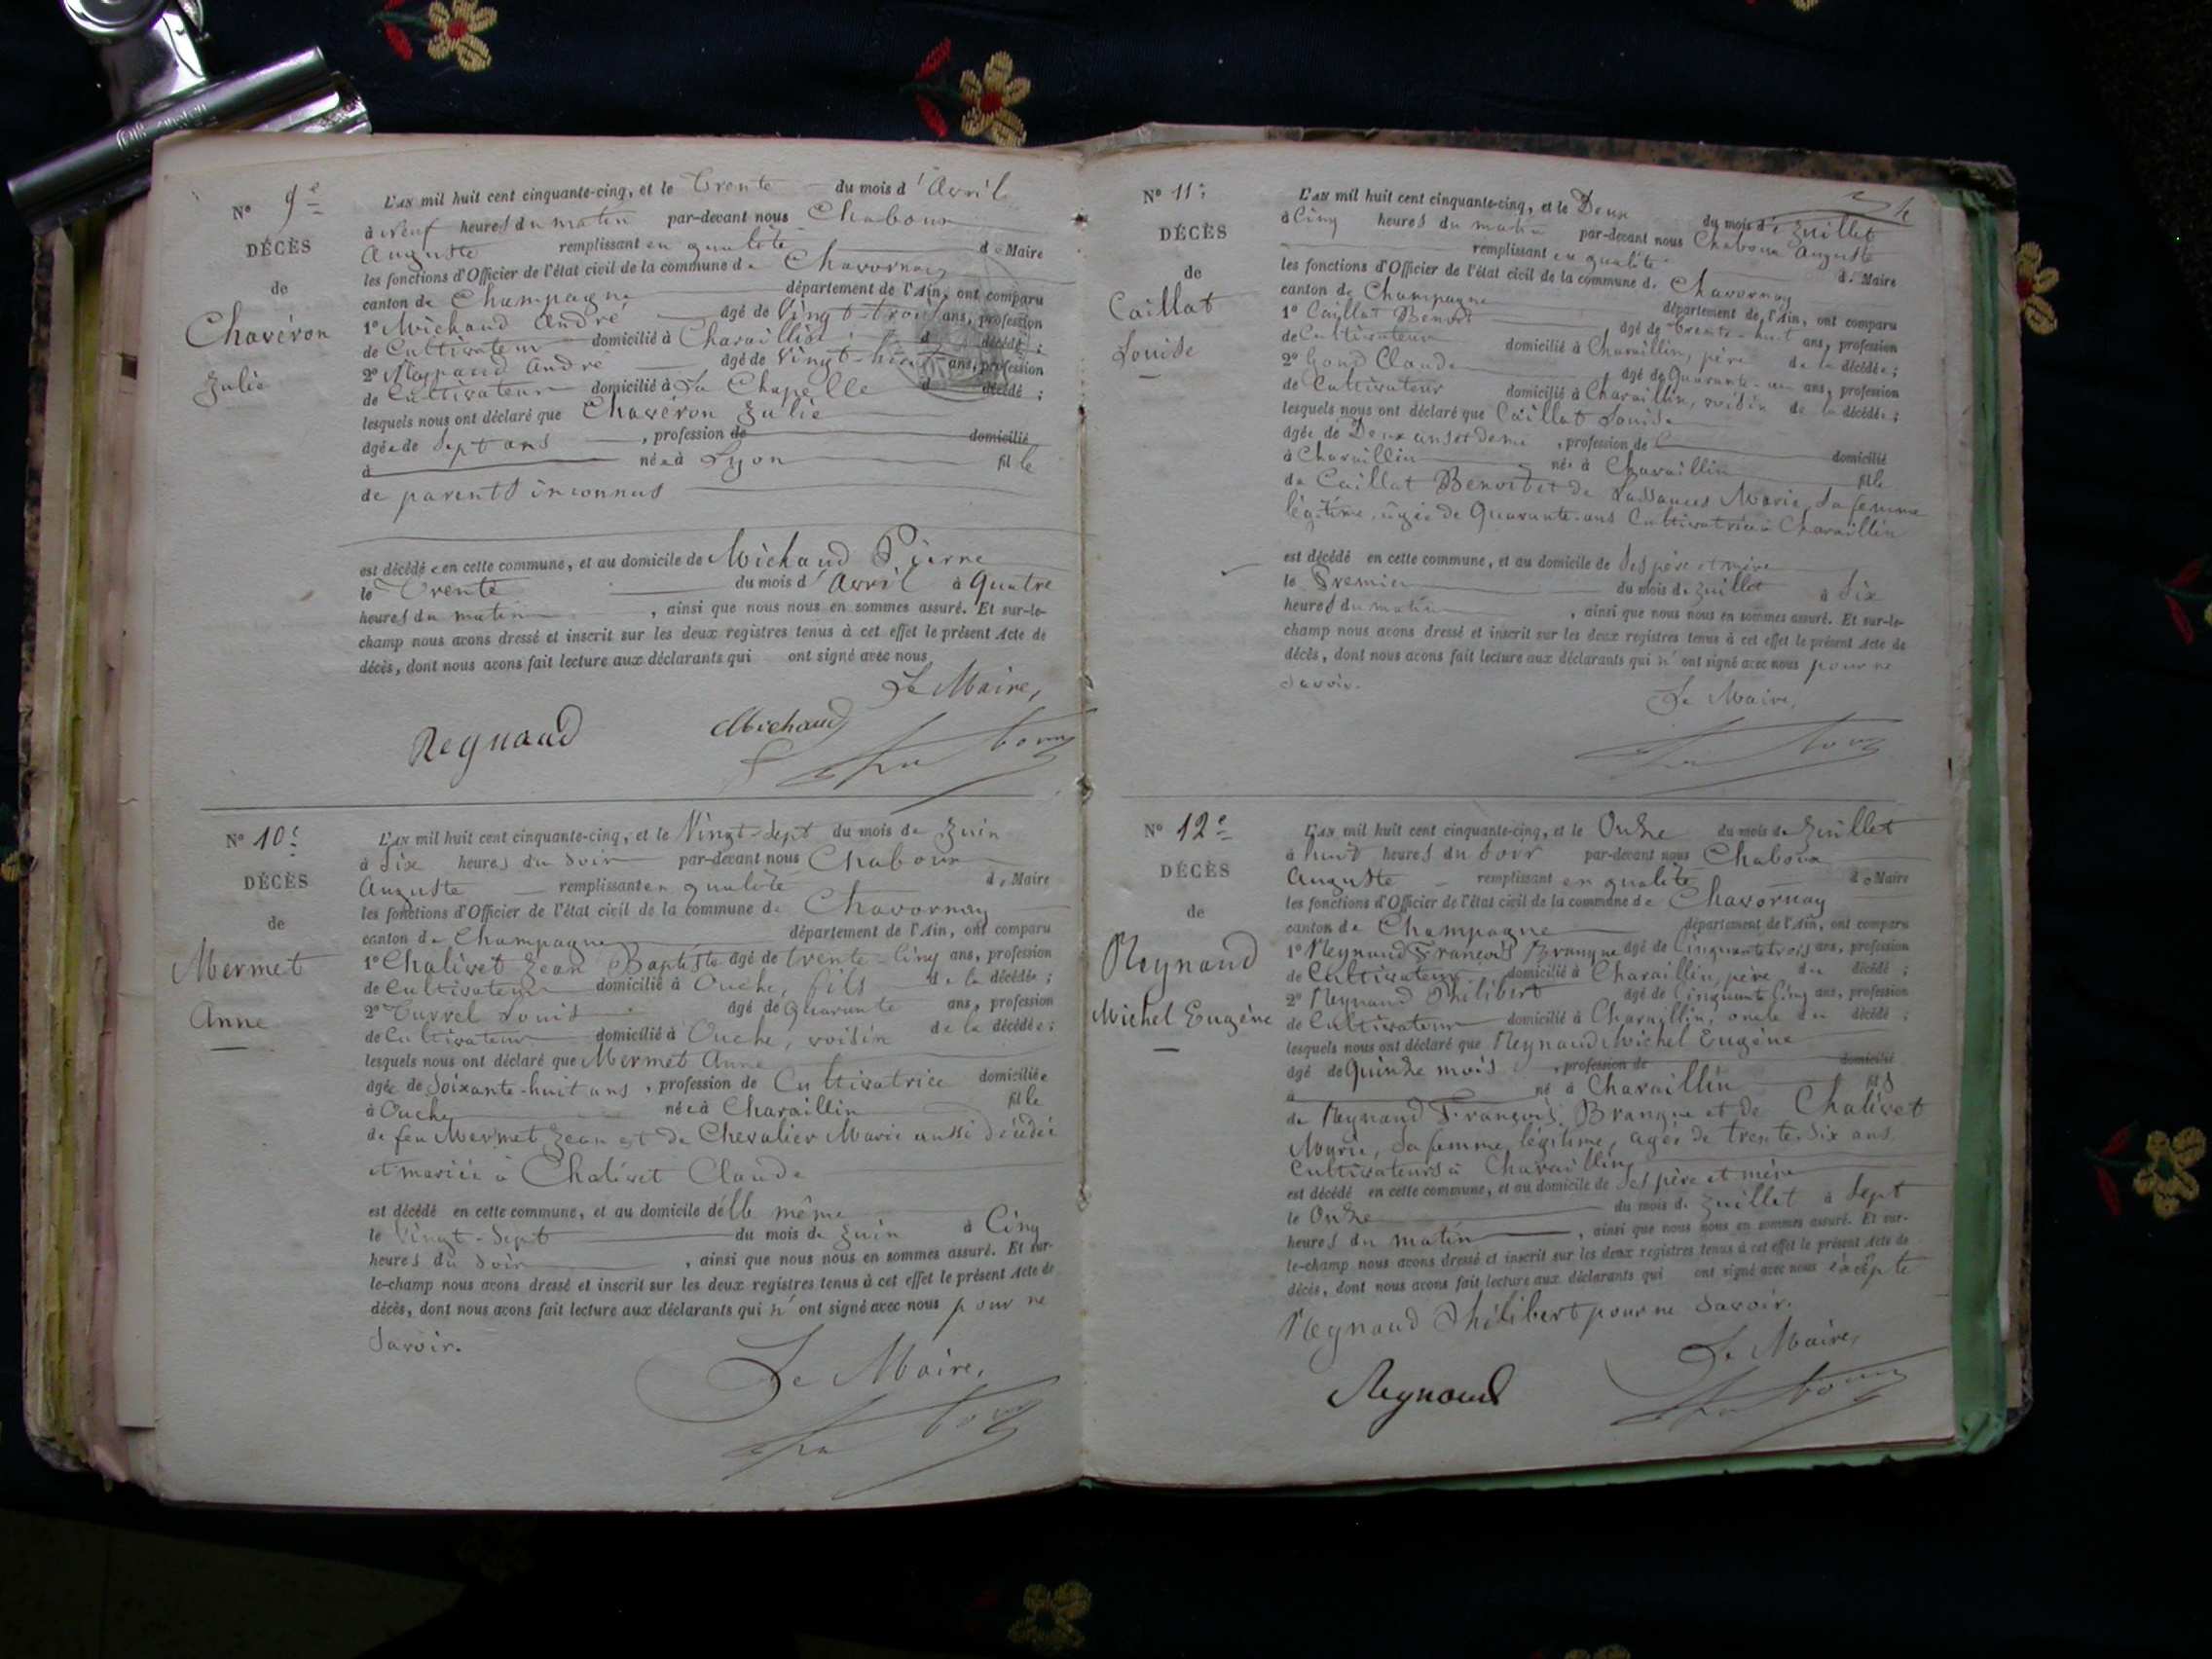 N° 9e
DÉCÈS
de
Chavéron
Julie
L'AN mil huit cent cinquante-cinq, et le Trente du mois d'Avril
à Neuf heures du matin par-devant nous Chaboux
Auguste remplissant en qualité de Maire
les fonctions d'Officier de l'état civil de la commune de Chavornay
canton de Champagne département de l'Ain, ont comparu
1° Michaud André âgé de Vingt-trois ans, profession
de Cultivateur domicilié à Charaillin d décédé ;
2° Reynaud André âgé de Vingt-huit ans, profession
de Cultivateur domicilié à La Chapelle d décédé ;
lesquels nous ont déclaré que Chavéron Julie
âgée de Sept ans , profession de domicilié
à née à Lyon fille
de parents inconnus
est décédée en cette commune, et au domicile de Michaud Pierre
le Trente du mois d'Avril à Quatre
heures du matin , ainsi que nous nous en sommes assuré. Et sur-le-
champ nous avons dressé et inscrit sur les deux registres tenus à cet effet le présent Acte de
décès, dont nous avons fait lecture aux déclarants qui ont signé avec nous
Le Maire,
Reynaud Michaud Chaboux
N° 10e
DÉCÈS
de
Mermet
Anne
L'AN mil huit cent cinquante-cinq, et le Vingt-Sept du mois de Juin
à Six heures du Soir par-devant nous Chaboux
Auguste remplissant en qualité de Maire
les fonctions d'Officier de l'état civil de la commune de Chavornay
canton de Champagne département de l'Ain, ont comparu
1° Chalivet Jean Baptiste âgé de trente-Cinq ans, profession
de Cultivateur domicilié à Ouche, fils de la décédée ;
2° Turrel Louis âgé de Quarante ans, profession
de Cultivateur domicilié à Ouche, voisin de la décédée ;
lesquels nous ont déclaré que Mermet Anne
âgée de Soixante-huit ans , profession de Cultivatrice domiciliée
à Ouche née à Charaillin fille
de feu Mermet Jean et de Chevalier Marie aussi décédée
et mariée à Chalivet Claude
est décédé en cette commune, et au domicile d'elle même
le Vingt-Sept du mois de Juin à Cinq
heures du Soir , ainsi que nous nous en sommes assuré. Et sur-
le-champ nous avons dressé et inscrit sur les deux registres tenus à cet effet le présent Acte de
décès, dont nous avons fait lecture aux déclarants qui n'ont signé avec nous pour ne
Savoir.
Le Maire,
Chaboux
N° 11e
DÉCÈS
de
Caillat
Louise
L'AN mil huit cent cinquante-cinq, et le Deux du mois de Juillet
à Cinq heures du matin par-devant nous Chaboux Auguste
remplissant en qualité de Maire
les fonctions d'Officier de l'état civil de la commune de Chavornay
canton de Champagne département de l'Ain, ont comparu
1° Caillat Benoit , âgé de trente-huit ans, profession
de Cultivateur domicilié à Charaillin, père de la décédée ;
2° Gond Claude , âgé de Quarante-un ans, profession
de Cultivateur domicilié à Charaillin, voisin de la décédée ;
lesquels nous ont déclaré que Caillat Louise
âgée de Deux ans et demi , profession de domicilié
à Charaillin née à Charaillin fille
de Caillat Benoit et de Marie, Sa femme
légitime, âgée de Quarante-ans Cultivatrice à Charaillin
est décédé en cette commune, et au domicile de Ses père et mère
le Premier du mois de Juillet à Six
heures du matin , ainsi que nous nous en sommes assuré. Et sur-le-
champ nous avons dressé et inscrit sur les deux registres tenus à cet effet le présent Acte de
décès, dont nous avons fait lecture aux déclarants qui n'ont signé avec nous pour ne
Savoir.
Le Maire,
Chaboux
N° 12e
DÉCÈS
de
Reynaud
Michel Eugène
L'AN mil huit cent cinquante-cinq, et le Onze du mois de Juillet
à huit heures du Soir par-devant nous Chaboux
Auguste remplissant en qualité de Maire
les fonctions d'Officier de l'état civil de la commune de Chavornay
canton de Champagne département de l'Ain, ont comparu
1° Reynaud François Brangue âgé de Cinquante trois ans, profession
de Cultivateur domicilié à Charaillin, père du décédé ;
2° Reynaud Philibert âgé de Cinquante Cinq ans, profession
de Cultivateur domicilié à Charaillin, oncle du décédé ;
lesquels nous ont déclaré que Reynaud Michel Eugène
âgé de Quinze mois , profession de domicilié
à né à Charaillin fils
de Reynaud François Brangue et de Chalivet
Marie, Sa femme légitime, âgée de trente Six ans
Cultivateurs à Charaillin
est décédé en cette commune, et au domicile de Ses père et mère
le Onze du mois de Juillet à Sept
heures du matin , ainsi que nous nous en sommes assuré. Et sur-
le-champ nous avons dressé et inscrit sur les deux registres tenus à cet effet le présent Acte de
décès, dont nous avons fait lecture aux déclarants qui ont signé avec nous excepté
Reynaud Philibert pour ne Savoir.
Le Maire,
Reynaud Chaboux